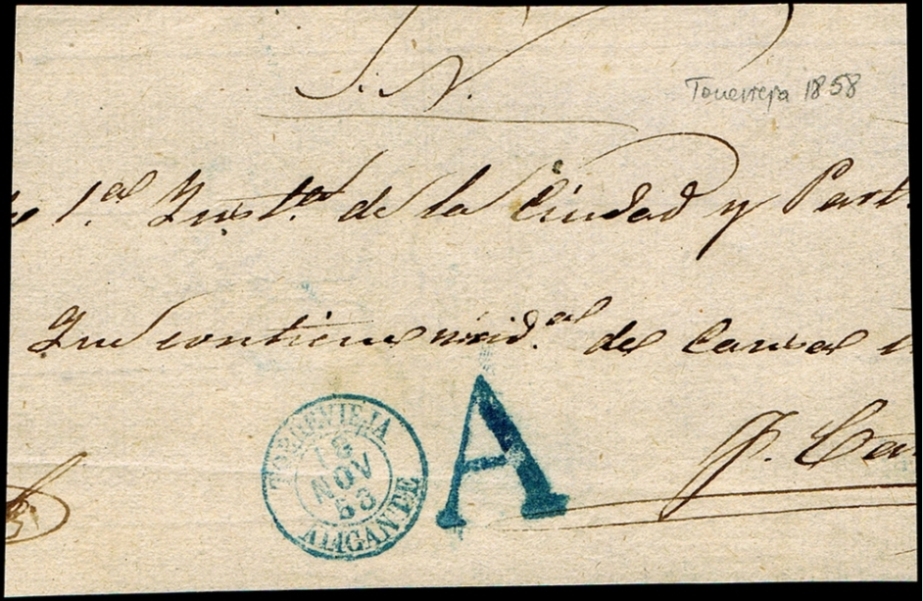 S. N.
Torrevieja 1858
1.al Inst.a de la Ciudad y Part
Que contiene de Causa
P. Ca
TORREVIEJA
18
NOV
58
ALICANTE
A